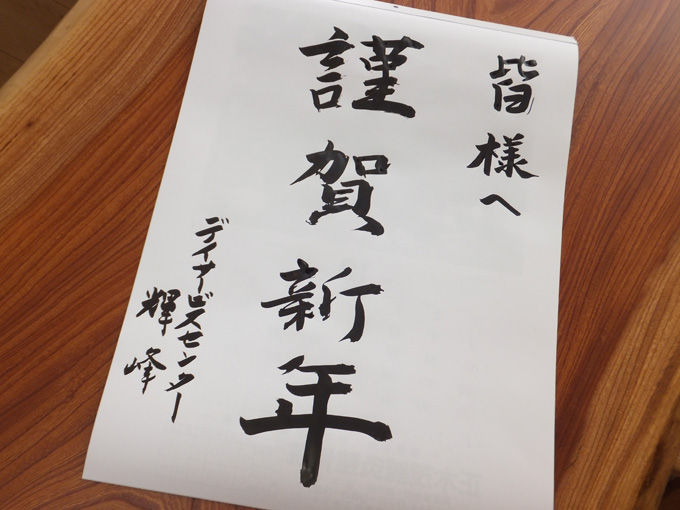 皆様へ
謹賀新年
デイサービスセンター
輝峰